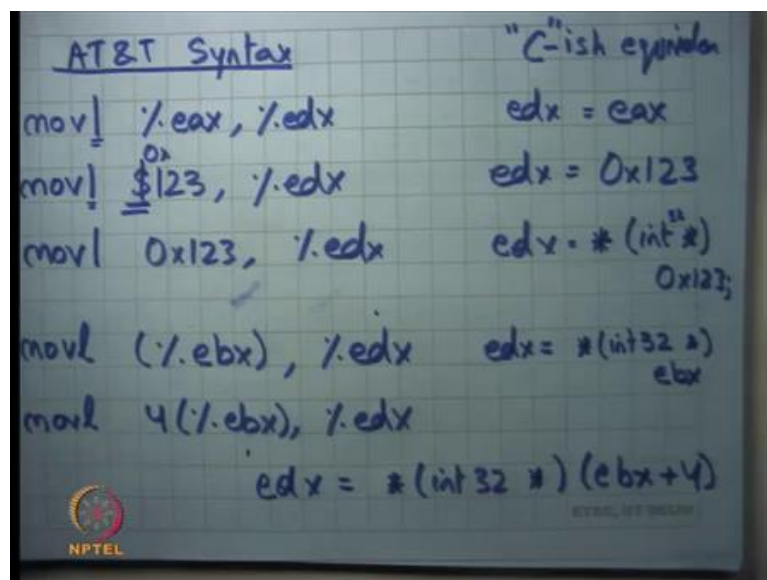 AT&T Syntax "C"-ish equivalen
movl %eax, %edx edx = eax
movl $0x123, %edx edx = 0x123
movl 0x123, %edx edx = *(int32 *)
0x123;
movl (%ebx), %edx edx = *(int32 *)
ebx
movl 4(%ebx), %edx
edx = *(int32 *)(ebx+4)
NPTEL